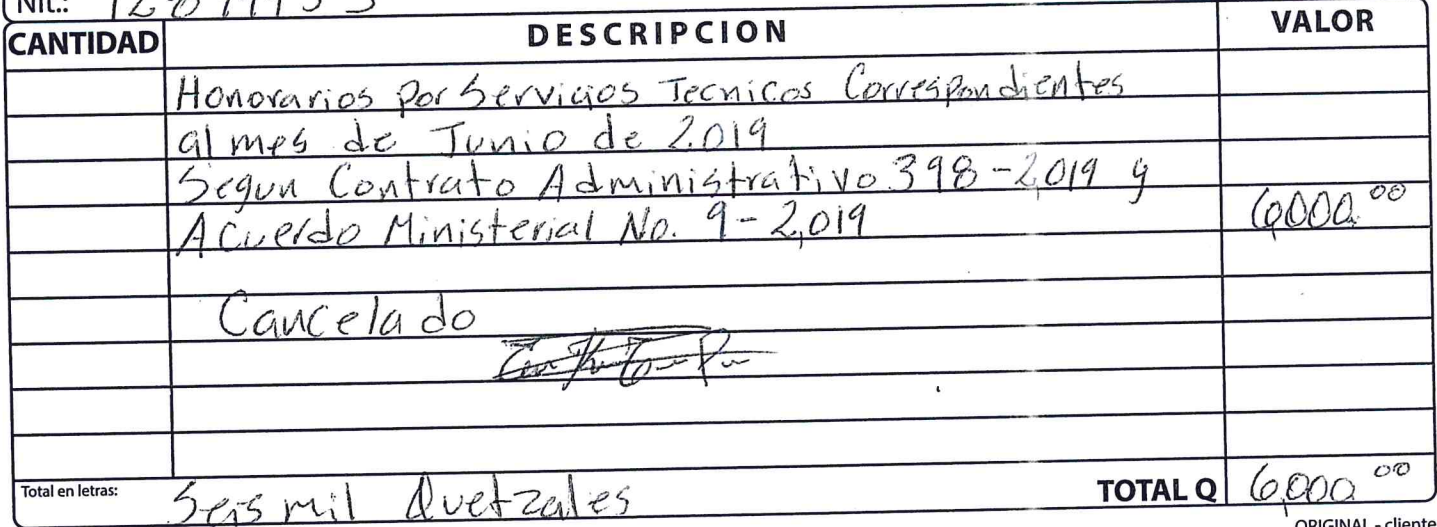 Nit.:
CANTIDAD DESCRIPCION VALOR
Honorarios por Servicios Tecnicos Correspondientes
al mes de Junio de 2.019
Segun Contrato Administrativo 398-2,019 y
Acuerdo Ministerial No. 9-2,019 6,000.00
Cancelado
Total en letras: Seis mil Quetzales TOTAL Q 6,000.00
ORIGINAL - cliente